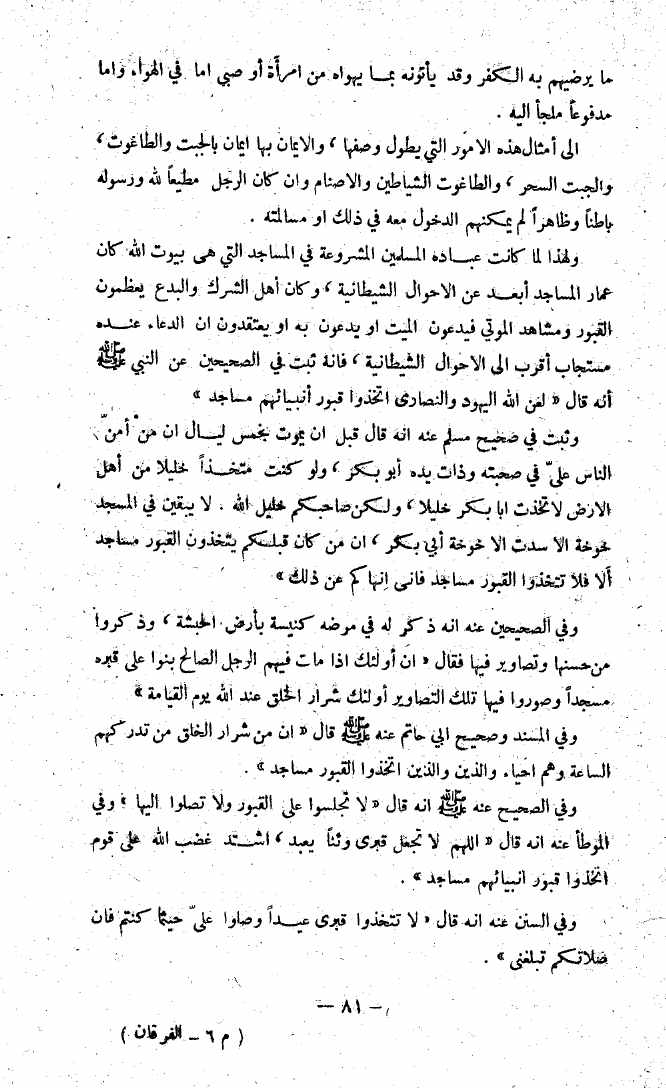 ما يرضيهم به الكفر وقد يأتونه بما يهواه من امرأة أو صبي اما في الهواء واما
مدفوعاً ملجأ اليه .
الى أمثال هذه الامور التي يطول وصفها ، والايمان بها ايمان بالجبت والطاغوت ،
والجبت السحر ، والطاغوت الشياطين والاصنام وان كان الرجل مطيعاً لله ورسوله
باطناً وظاهراً لم يمكنهم الدخول معه في ذلك او مسالمته .
ولهذا لما كانت عباده المسلمين المشروعة في المساجد التي هى بيوت الله كان
عمار المساجد أبعد عن الاحوال الشيطانية ، وكان أهل الشرك والبدع يعظمون
القبور ومشاهد الموتي فيدعون الميت او يدعون به او يعتقدون ان الدعاء عنده
مستجاب أقرب الى الاحوال الشيطانية ، فانة ثبت في الصحيحين عن النبي ﷺ
أنه قال « لعن الله اليهود والنصارى اتخذوا قبور أنبيائهم مساجد »
وثبت في صحيح مسلم عنه انه قال قبل ان يموت بخمس ليال ان من أمنّ
الناس عليّ في صحبته وذات يده أبو بكر ، ولو كنت متخذاً خليلا من أهل
الارض لاتخذت ابا بكر خليلا ، ولكن صاحبكم خليل الله . لا يبقين في المسجد
خوخة الا سدت الا خوخة أبي بكر ، ان من كان قبلكم يتخذون القبور مساجد
ألا فلا تتخذوا القبور مساجد فانى انها كم عن ذلك »
وفي الصحيحين عنه انه ذكر له في مرضه كنيسة بأرض الحبشة ، وذكروا
من حسنها وتصاوير فيها فقال « ان أولئك اذا مات فيهم الرجل الصالح بنوا على قبره
مسجداً وصوروا فيها تلك التصاوير أولئك شرار الخلق عند الله يوم القيامة »
وفي المسند وصحيح ابي حاتم عنه ﷺ قال « ان من شرار الخلق من تدركهم
الساعة وهم احياء والذين والذين اتخذوا القبور مساجد » .
وفي الصحيح عنه ﷺ انه قال « لا تجلسوا على القبور ولا تصلوا اليها » وفي
الموطأ عنه انه قال « اللهم لا تجعل قبرى وثناً يعبد ، اشتد غضب الله على قوم
اتخذوا قبور انبيائهم مساجد » .
وفي السنن عنه انه قال « لا تتخذوا قبرى عيداً وصلوا عليّ حيثما كنتم فان
صلاتكم تبلغنى » .
— ٨١ —
( م ٦ – الفرقان )